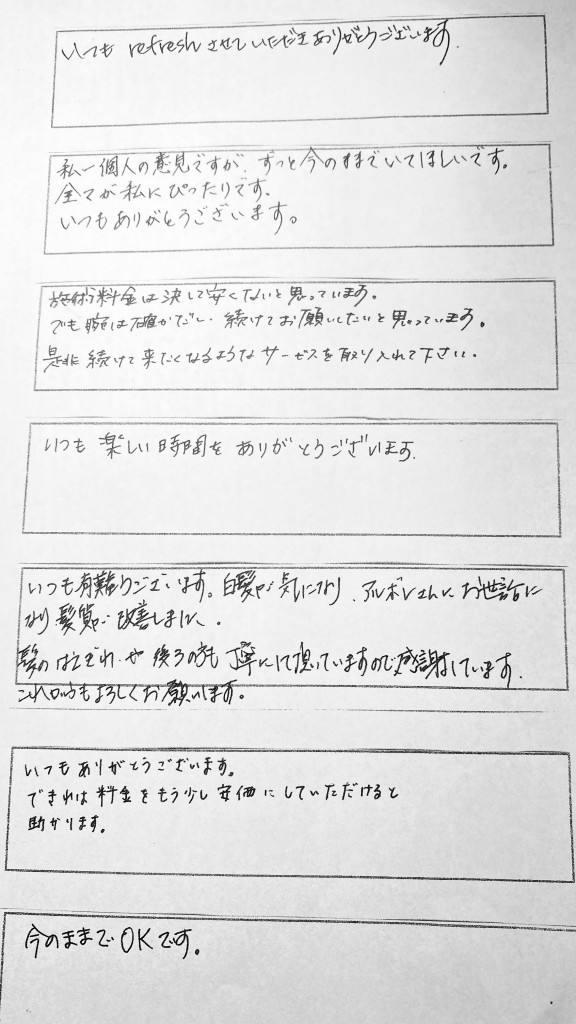 いつも refresh させていただきありがとうございます.
私一個人の意見ですが、ずっと今のままでいてほしいです。
全てが私にぴったりです.
いつもありがとうございます。
施術料金は決して安くないと思っています。
でも腕は確かだし、続けてお願いしたいと思っています。
是非続けて来たくなるようなサービスを取り入れて下さい.
いつも 楽しい時間を ありがとうございます.
いつも有難うございます。白髪が気になり、アルボレさんにお世話に
なり髪質が改善しました.
髪のはえぎわや後ろの方も丁寧にして頂いていますので感謝しています.
これからもよろしくお願いします。
いつもありがとうございます。
できれば料金をもう少し安価にしていただけると
助かります。
今のままでOKです。